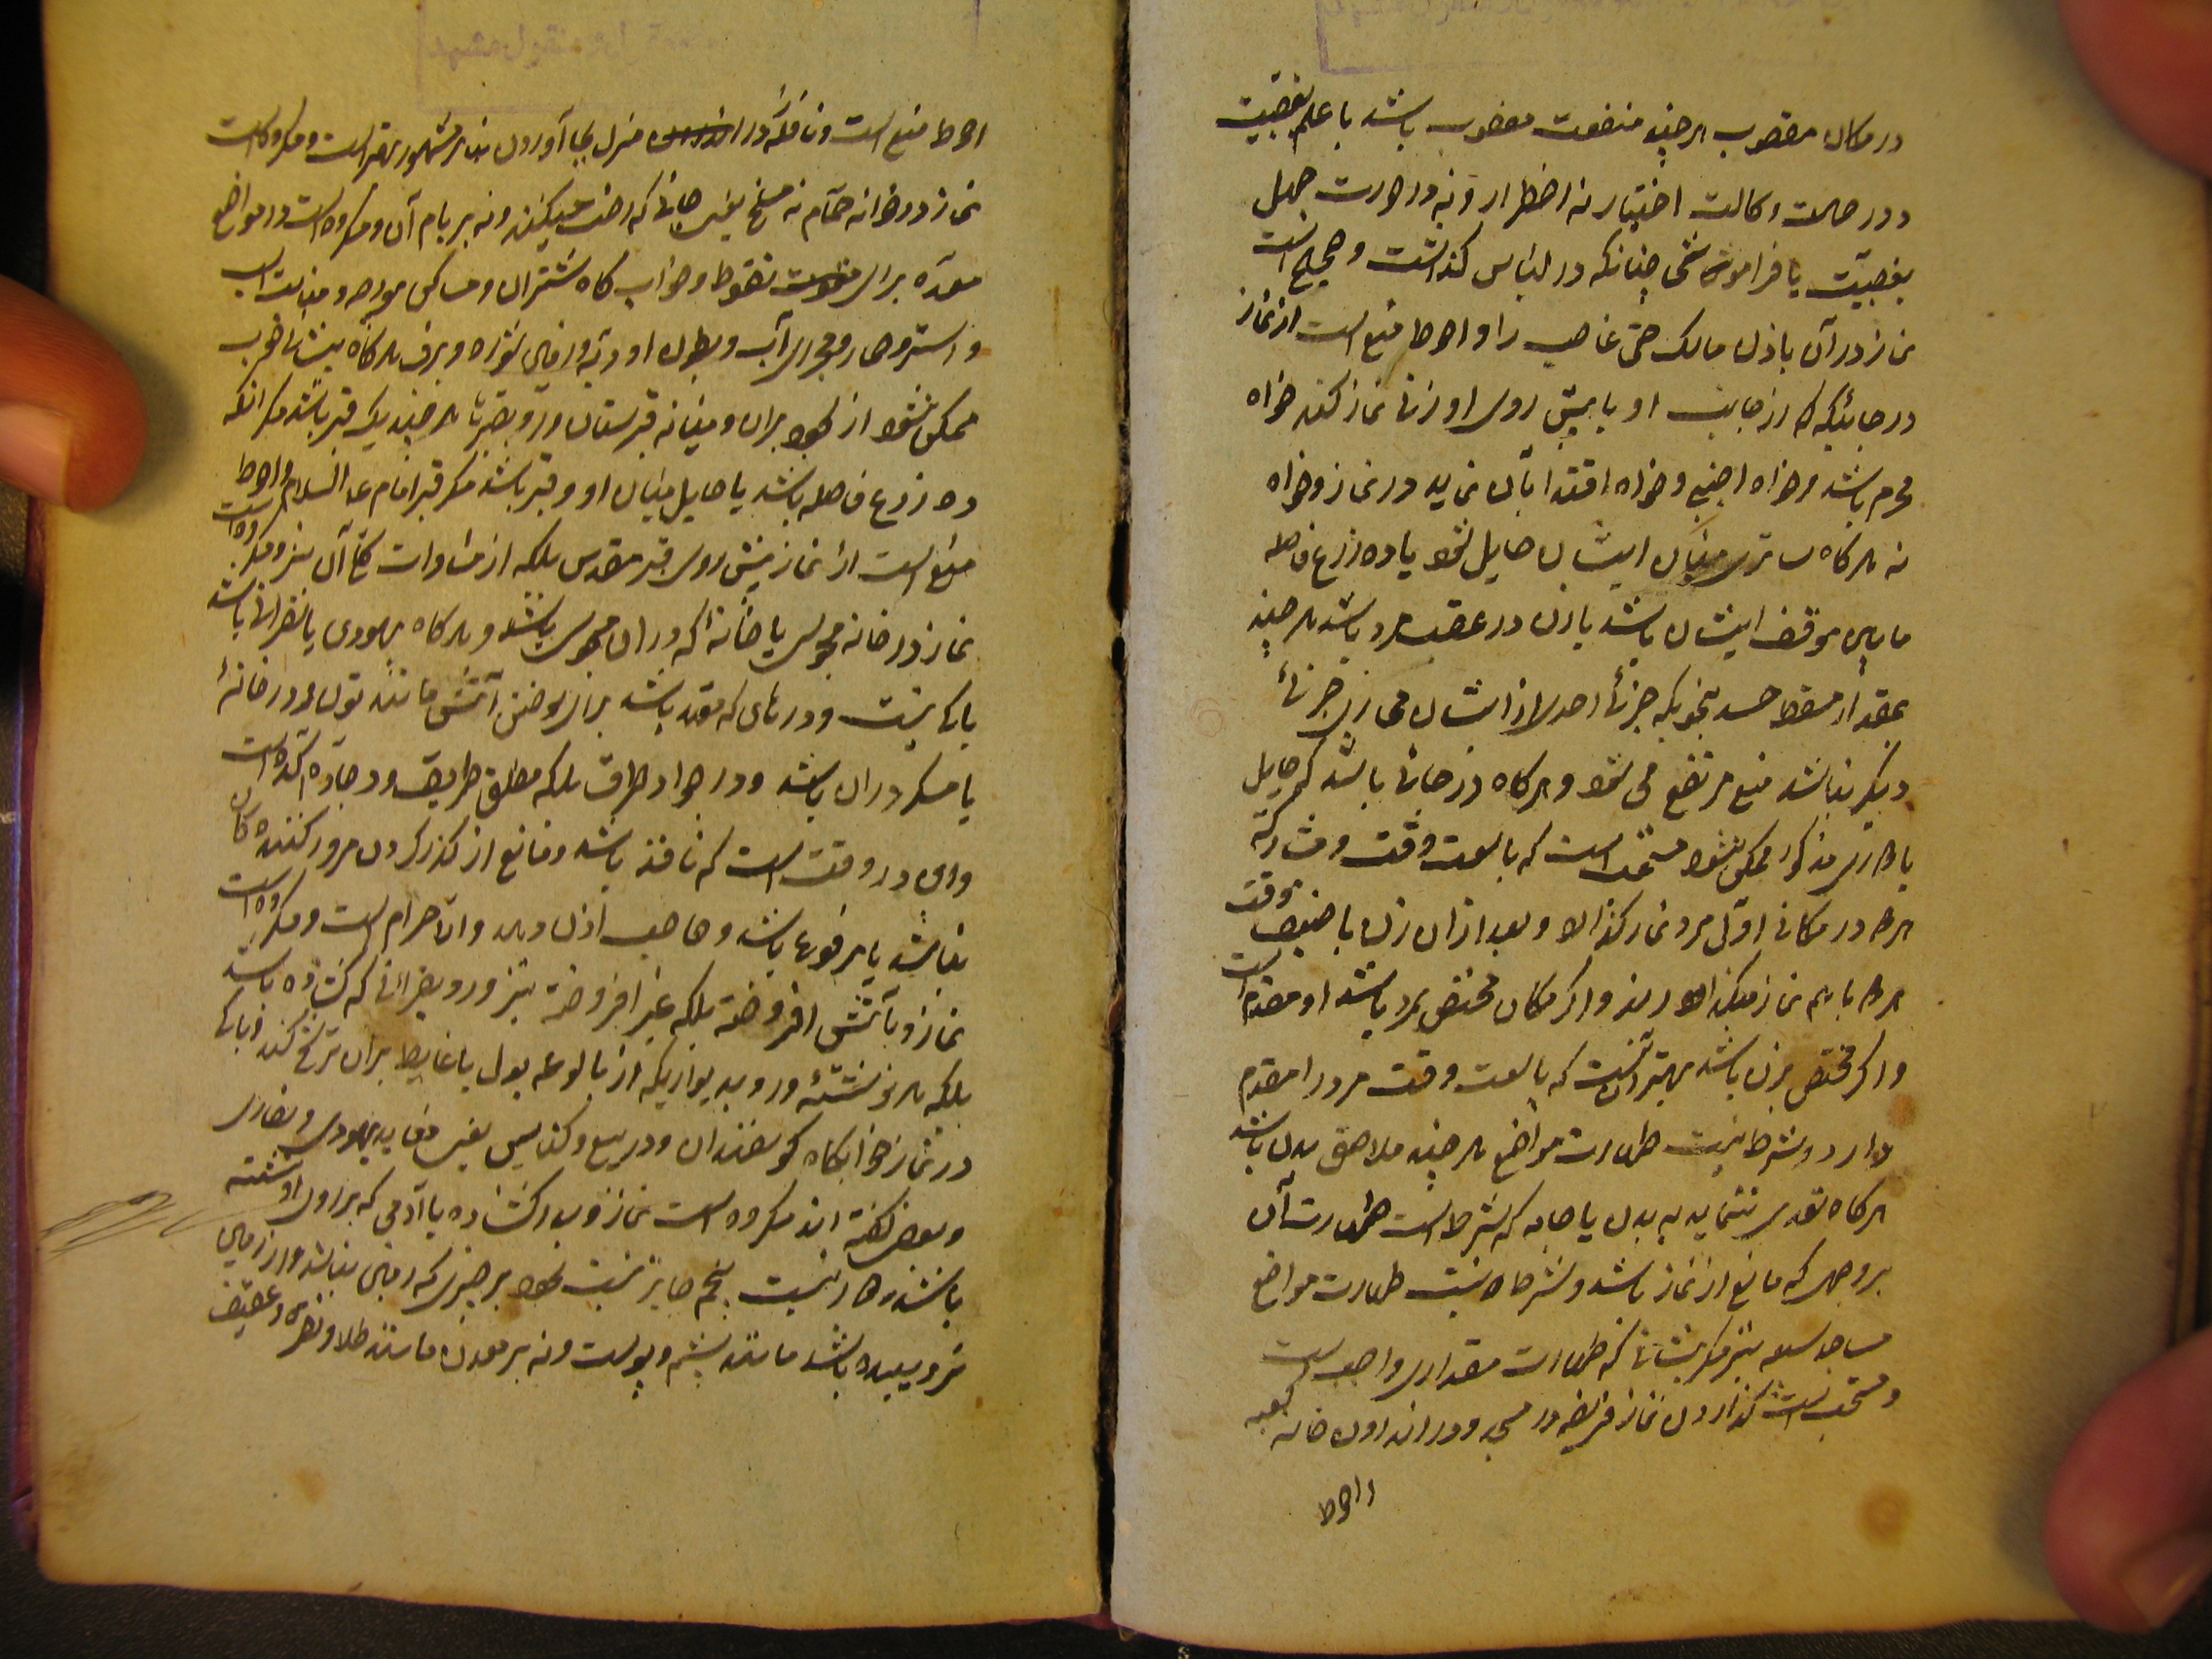 در مکان مغصوب هر چند منفعت مغصوب باشد با علم بغصبیت
و در حالت و کالت اختیار نه اضطرار و نه در صورت جهل
بغصبیت یا فراموشی چنانکه در لباس گذشت و صحیح است
نماز در آن باذن مالک حتی غاصب را و احوط منع است از نماز
در جائیکه در جانب او یا پیش روی او زنی نماز کند خواه
محرم باشد و خواه اجنبی و خواه اقتدا بآن نماید در نماز و خواه
نه هر گاه ساتری میان ایشان حایل نشود یا ده زرع فاصله
مابین موقف ایشان باشد یا زن در عقب مرد باشد هر چند
بمقدار مسقط جسد بنحویکه جزئی احدی از ایشان محاذی جزئی
دیگر نباشد منع مرتفع می شود و هر گاه در جائی باشد که حایل
یا دوری مذکور ممکن نشود مستحب است که با سعت وقت و مشارکت
هر دو در مکانی اول مرد نماز گذارد و بعد از آن زن و با ضیق وقت
هر دو با هم نماز میگذارند و اگر مکان مختص بمرد باشد او مقدم است
و اگر مختص بزن باشد بهتر آنست که با سعت وقت مرد را مقدم
دارد و شرط نیست طهارت مواضع هر چند ملاصق بدن باشد
هر گاه تعدی ننماید به بدن یا جامه که شرط است طهارت آن
بر وجهی که مانع از نماز باشد و شرط نیست طهارت مواضع
مساجد سبعه نیز مگر پیشانی که طهارت مقداری واجب است
و مستحب است گذاردن نماز فریضه در مسجد و در اندرون خانه کعبه
و احوط
احوط منع است و نافله در منزل بجا آوردن بنابر مشهور بهتر است و مکروه است
نماز در خانه حمام نه مسلخ یعنی جائی که رخت میکنند و نه بر بام آن و مکروه است در مواضع
معده برای تغوط و خواب گاه شتران و مساکن مورچه و
و استر و حمار و مجرای آب و بطون اودیه و زمین شوره و برف هر گاه پیشانی
ممکن نشود از سجود بران و میانه قبرستان و رو بقبر هر چند یک قبر باشد مگر آنکه
ده زرع فاصله باشد یا حایل میان او و قبر باشد مگر قبر امام علیه السلام و احوط
منع است از نماز پیش روی قبر مقدس بلکه از مساوات آن نیز و مکروه است
نماز در خانه مجوس یا خانه که در آن مجوسی باشد و هر گاه یهودی یا نصرانی باشد
باکی نیست و در جای که معد باشد برای افروختن آتش مانند تون و در خانه
یا مسکر در آن باشد و در جواد طرق بلکه مطلق طریق و در جاده
و این در وقت است که نافذ باشد و مانع از گذر کردن مرور کننده گان
نباشد یا مرفوعه باشد و صاحب اذن دهد و الا حرام است و مکروه است
نماز رو بآتش افروخته بلکه غیر افروخته نیز و رو بقرآنی که گشاده باشد
بلکه هر نوشته و رو بدیواریکه از بالوعه بول یا غایط بران ترشح کند و باکی
در نماز خوابگاه گوسفندان و در بیع و کنایس یعنی معابد یهودی و نصاری
و بعضی گفته اند مکروه است نماز رو بدر گشاده یا آدمی که برابر او نشسته
باشد پنجم جایز نیست سجود بر چیزی که زمین نباشد و از زمین
نروییده باشد مانند پشم و پوست و نه بر معدن مانند طلا و نقره و عقیق